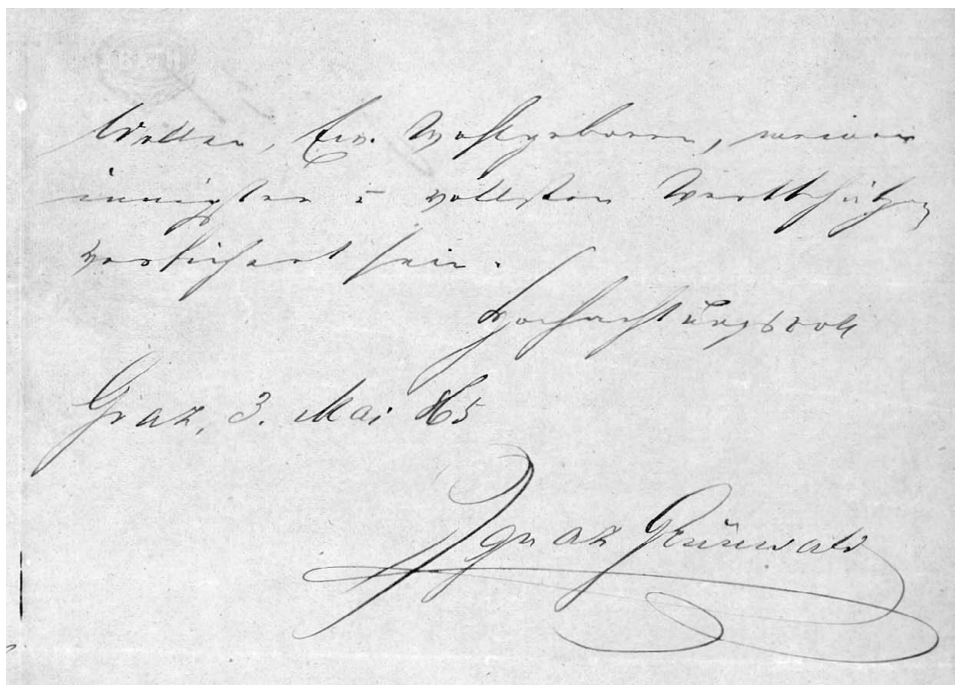 Wollen, Ew. Wohlgeboren, meiner
innigsten u vollsten Werthschätzung
versichert sein.
Hochachtungsvoll
Graz, 3. Mai 865
Ignaz Grünwald